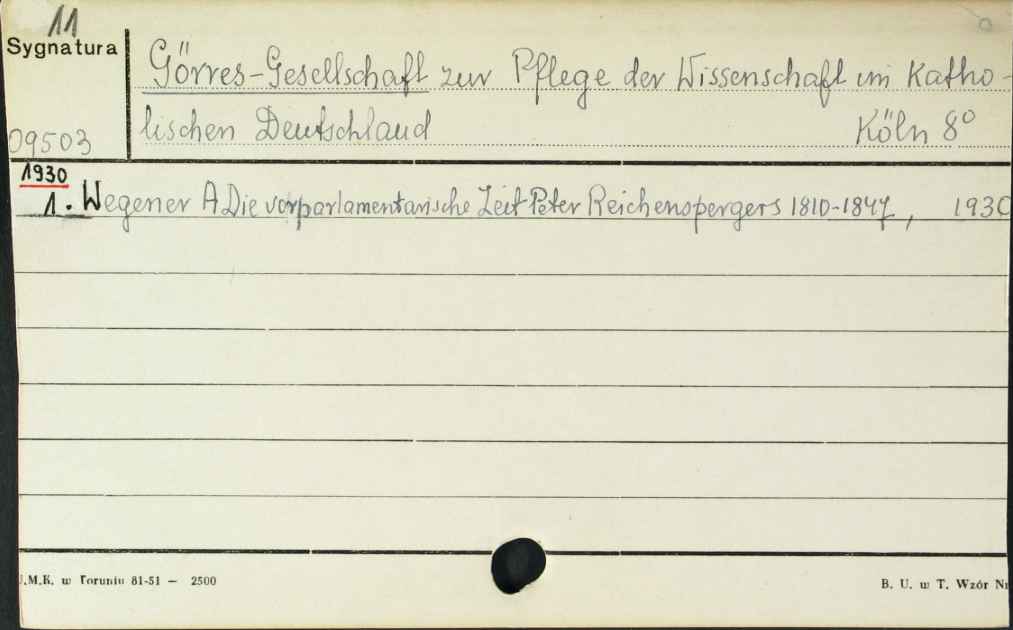 11
Sygnatura
Görres-Gesellschaft zur Pflege der Wissenschaft im Katho-
lischen Deutschland Köln 8°
09503
1930
1. Wegener A Die vorparlamentarische Zeit Peter Reichenspergers 1810-1847, 1930
U.M.K. w Toruniu 81-51 — 2500
B. U. w T. Wzór Nr